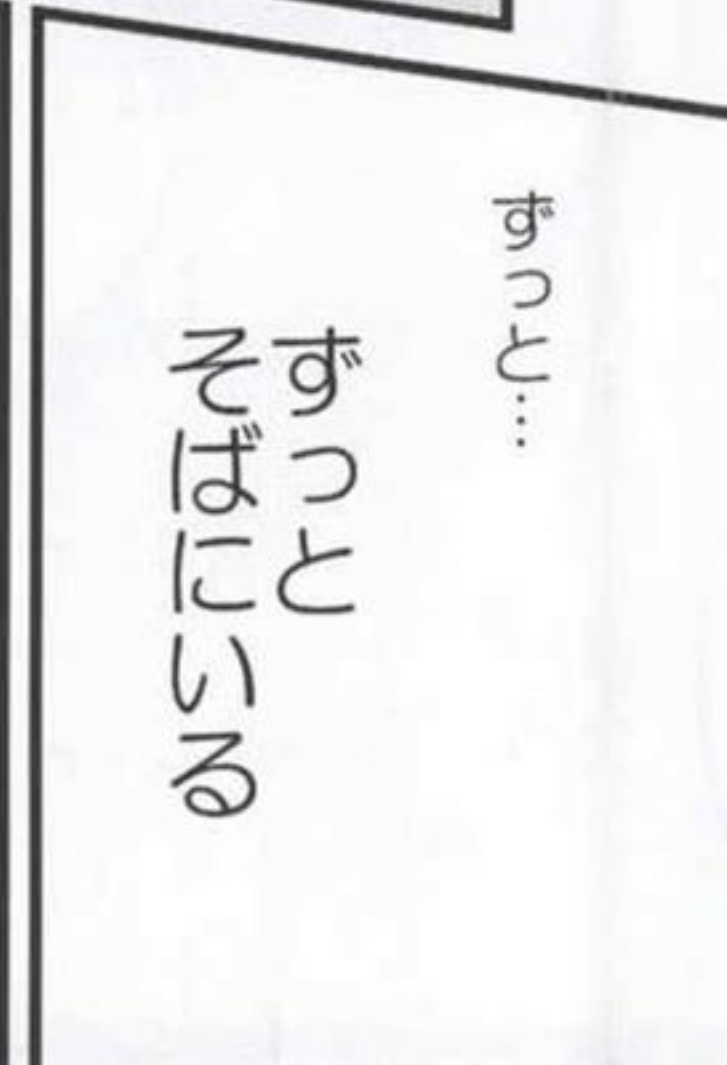 ずっと…
ずっと
そばにいる